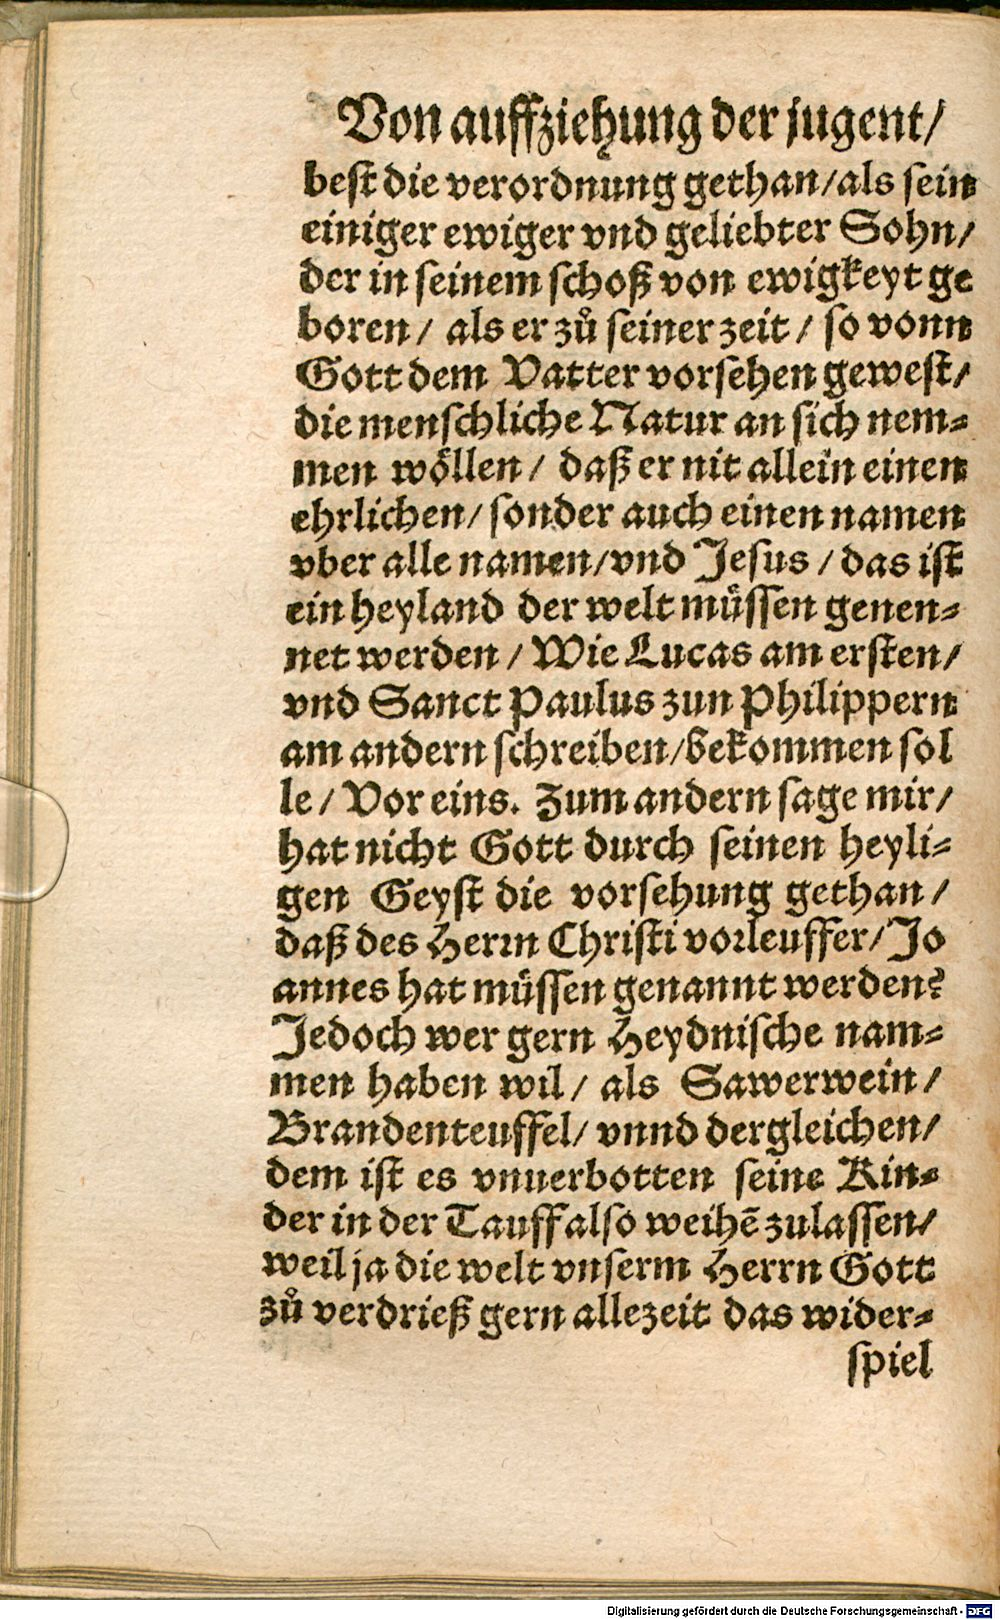 Von auffziehung der jugent/
best die verordnung gethan/als sein
einiger ewiger vnd geliebter Sohn/
der in seinem schoß von ewigkeyt ge
boren/ als er zů seiner zeit/ so vonn
Gott dem Vatter vorsehen gewest/
die menschliche Natur an sich nem-
men wöllen/ daß er nit allein einen
ehrlichen/ sonder auch einen namen
vber alle namen/vnd Jesus/das ist
ein heyland der welt müssen genen-
net werden/ Wie Lucas am ersten/
vnd Sanct Paulus zun Philippern
am andern schreiben/bekommen sol
le/ Vor eins. Zum andern sage mir/
hat nicht Gott durch seinen heyli-
gen Geyst die vorsehung gethan/
daß des Herrn Christi vorleuffer/Jo
annes hat müssen genannt werden?
Jedoch wer gern Heydnische nam-
men haben wil/ als Sawerwein/
Brandenteuffel/ vnnd dergleichen/
dem ist es vnuerbotten seine Kin-
der in der Tauff also weihē zulassen/
weil ja die welt vnserm Herrn Gott
zů verdrieß gern allezeit das wider-
spiel
Digitalisierung gefördert durch die Deutsche Forschungsgemeinschaft - DFG